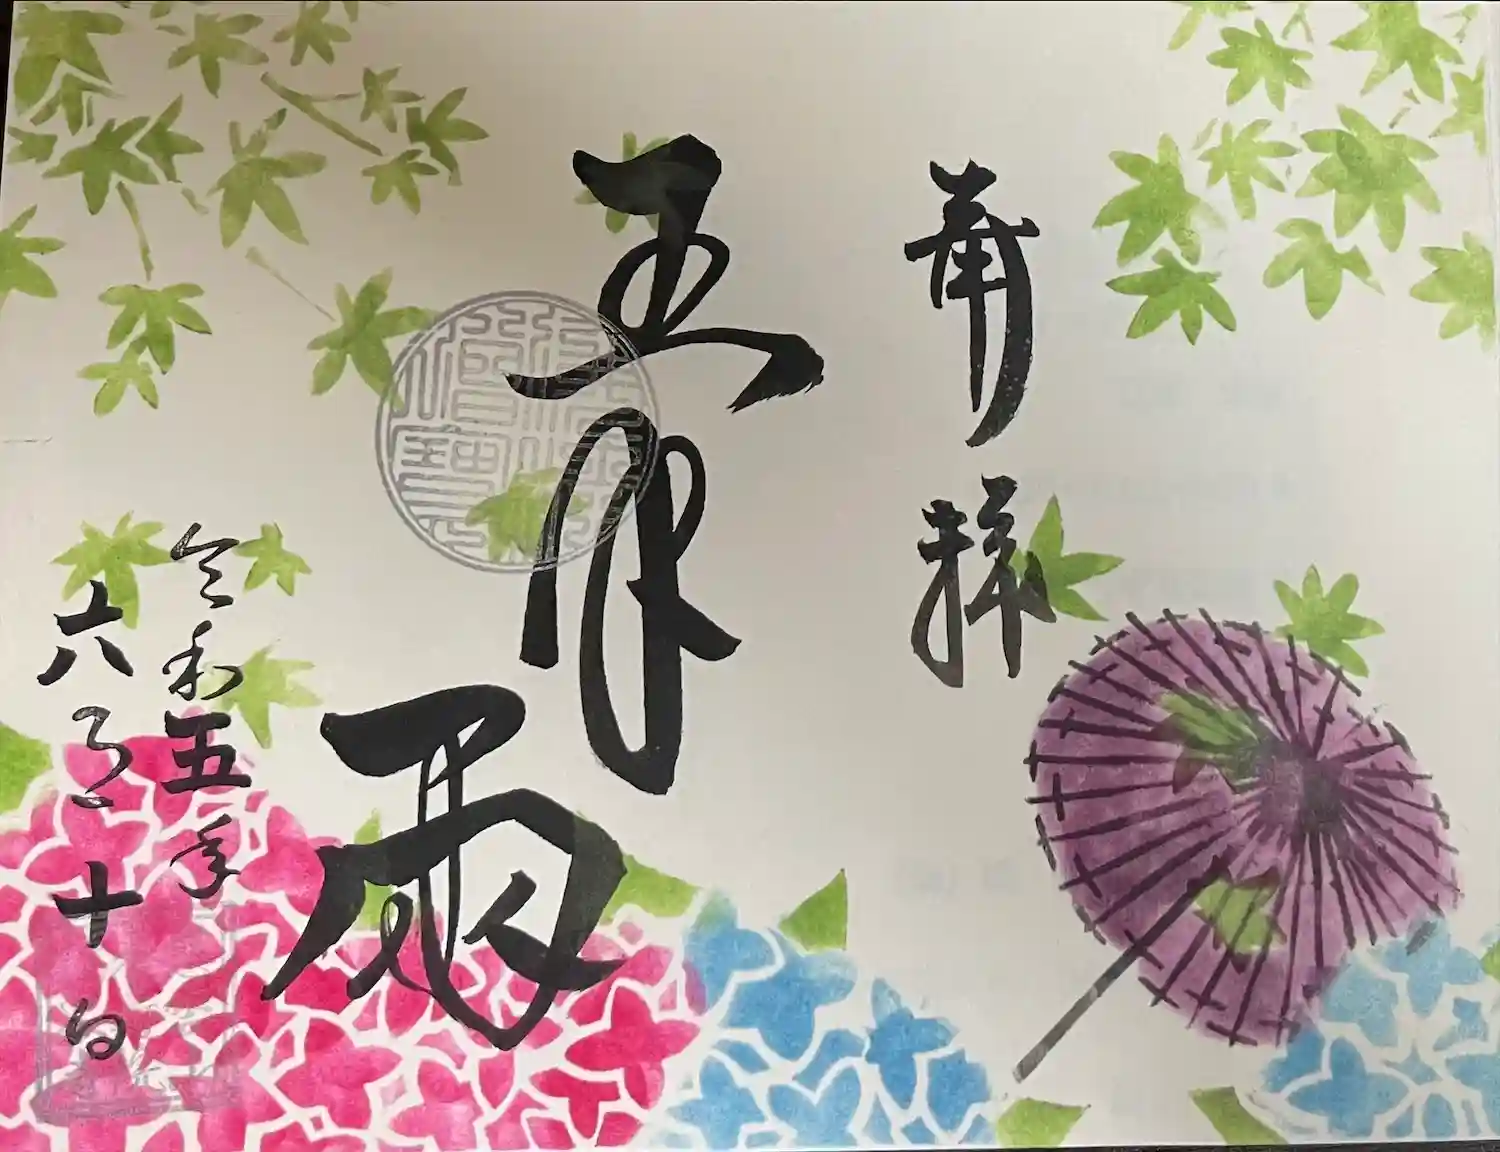 奉拝
五月雨
令和五年
六月十日